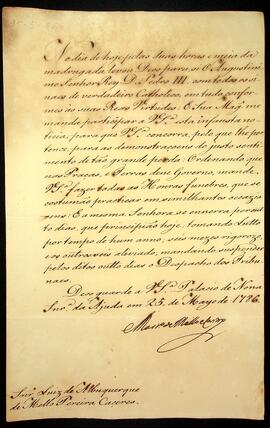 No dia de hoje pelas duas horas e meia da
madrugada levou Deos para si O Augustissi
mo Senhor Rey D. Pedro III. com todos os si
naes de verdadeiro Catholico, em tudo confor
mes às suas Reaes Virtudes. E Sua Mag.e me
manda participar a V.S.a esta infausta no
ticia, para que V.S.a concorra, pelo que lhe per
tence, para as demonstraçoens do justo senti
mento de tão grande perda: Ordenando que
nas Praças, e Terras desse Governo, mande
V.S.a fazer todas as Honras funebres, que se
costumão practicar em similhantes occazio
ens: E a mesma Senhora se encerra por oi
to dias, que principião hoje, tomando Lutto
por tempo de hum anno, seis mezes rigorozo,
e os outros seis aliviado, mandando suspender
pelos ditos outto dias o Despacho dos Tribu
naes.
Deos guarde a V.S.a Palacio de Nossa
Snr.a da Ajuda em 25 de Mayo de 1786.
Mart.o de Mello e Castro
Snr. Luiz de Albuquerque
de Mello Pereira Caceres.